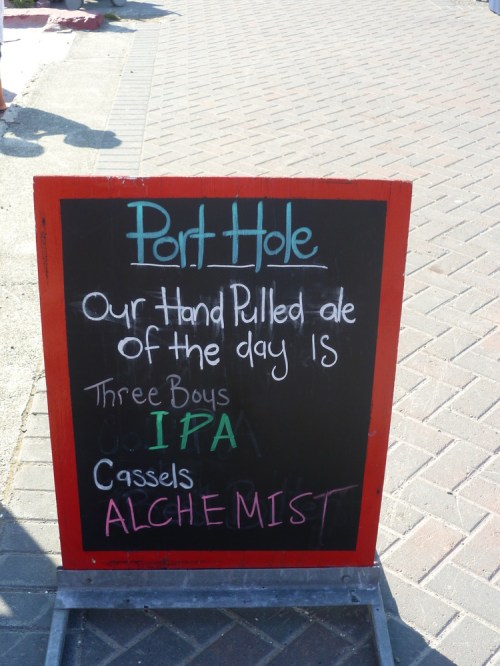 Port Hole
Our Hand Pulled ale
of the day is
Three Boys
IPA
Cassels
ALCHEMIST